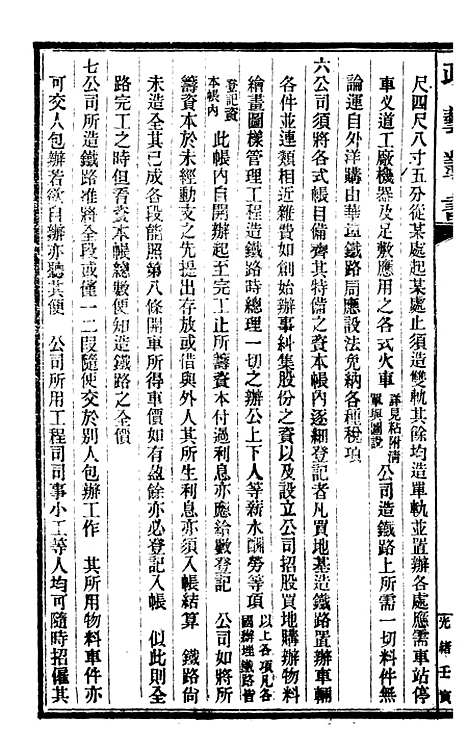 尺四尺八寸五分從某處起某處止須造雙軌其餘均造單軌並置辦各處應需車站停
車义道工廠機器及足敷應用之各式火車詳見粘附清單與圖說公司造鐵路上所需一切料件無
論運自外洋購由華境鐵路局應設法免納各種稅項
六公司須將各式帳目備齊其特備之資本帳內逐細登記者凡買地基造鐵路置辦車輛
各件並連類相近雜費如創始辦事糾集股份之資以及設立公司招股買地購辦物料
繪畫圖樣管理工程造鐵路時總理一切之辦公上下人等薪水酬勞等項以上各項凡各國辦理鐵路皆
登記資本帳內　此帳內自開辦起至完工止所籌資本付過利息亦應給數登記　公司如將所
籌資本於未經動支之先提出存放或借與外人其所生利息亦須入帳結算　鐵路尙
未造全其已成各段能照第八條開車所得車價如有盈餘亦必登記入帳　似此則全
路完工之時但看資本帳總數便知造鐵路之全價
七公司所造鐵路准將全段或僅一二段隨便交於別人包辦工作　其所用物料車件亦
可交人包辦若欲自辦亦聽其便　公司所用工程司司事小工等人均可隨時招僱其
政藝叢書
光緒壬寅